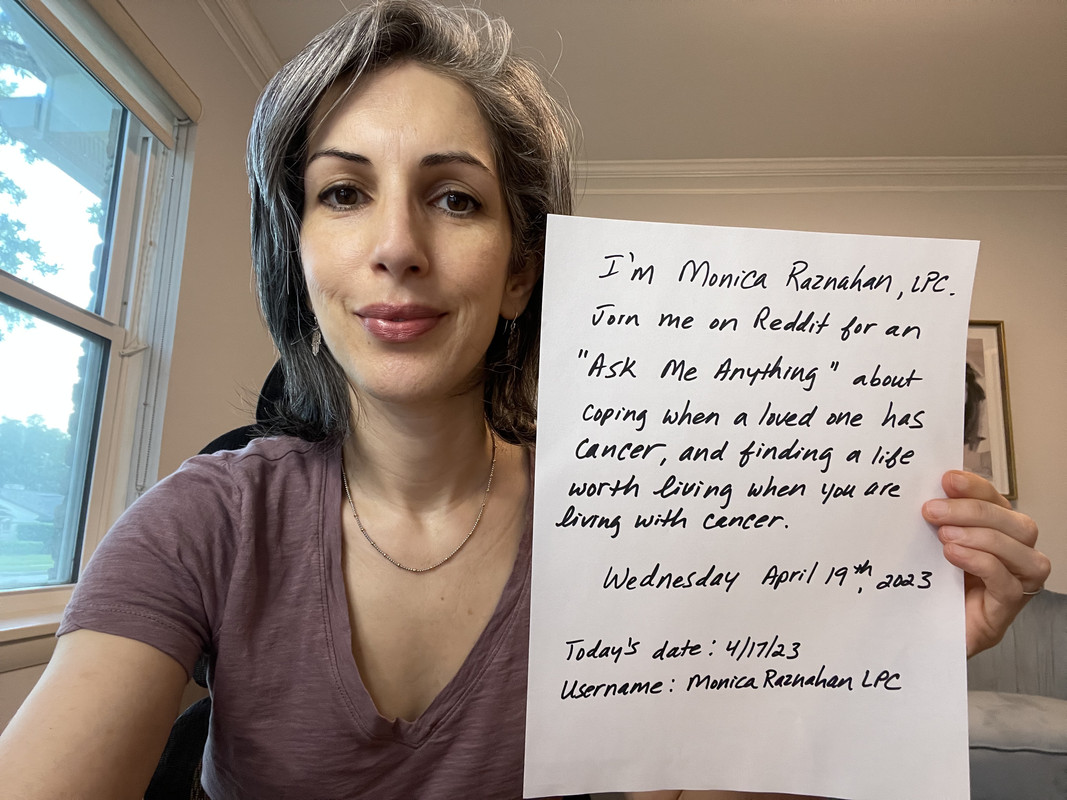 I'm Monica Raznahan, LPC.
Join me on Reddit for an
"Ask Me Anything" about
coping when a loved one has
cancer, and finding a life
worth living when you are
living with cancer.
Wednesday April 19th, 2023
Today's date: 4/17/23
Username: Monica Raznahan LPC